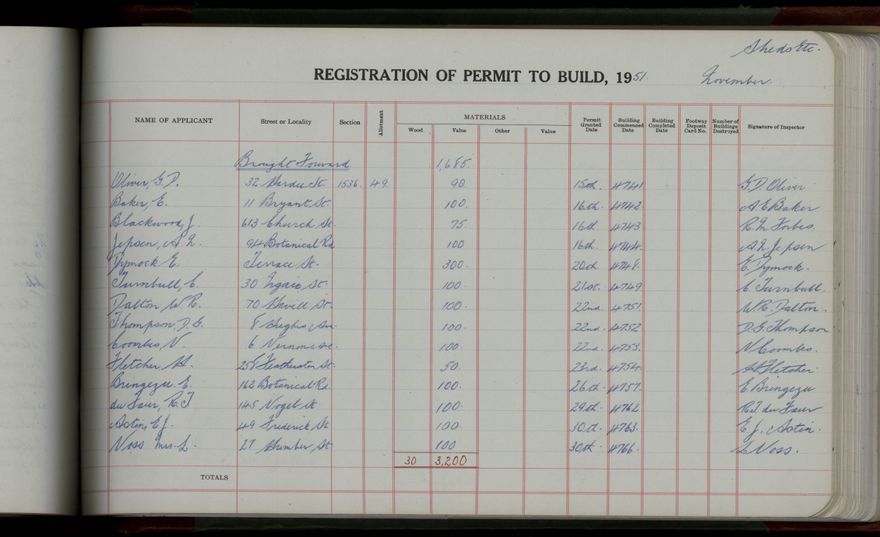 Sheds Etc.
REGISTRATION OF PERMIT TO BUILD, 1951 November.
NAME OF APPLICANT Street or Locality Section Allotment MATERIALS Wood Value Other Value Permit Granted Date Building Commenced Date Building Completed Date Footway Deposit Card No. Number of Buildings Destroyed Signature of Inspector
Brought Forward 1,685
Oliver, G.D. 32 Hardie St. 1536. 49. 90. 15th. 4741 G.D. Oliver
Baker, E. 11 Bryant St. 100. 16th. 4742 A E Baker
Blackwood, J. 613 Church St. 75 16th. 4743 R.N. Forbes
Jepsen, A.L. 94 Botanical Rd 100 16th. 4744. A L Jepsen
Dymock E. Terrace St. 300. 20th 4748. E. Dymock.
Turnbull, C. 30 Ngaio St. 100. 21st. 4749 C Turnbull
Dalton, W.R. 70 Savill St. 100. 22nd. 4751 W.R. Dalton.
Thompson, D.G. 8 Ave. 100. 22nd. 4752 D.G Thompson
Coombes, N. 6 100. 22nd. 4753. N Coombes.
Fletcher 258 Featherston St. 50 23rd. 4754. Fletcher
Bringezu E. 162 Botanical Rd 100. 26th. 4757. E. Bringezu
du Faur, R.J 145 Vogel St 100. 29th. 4762 R.J. du Faur
Astin, E J. 49 Frederick St 100. 30th. 4763. E J. Astin.
Voss Mrs. L. 27 St. 100 30th. 4766. L Voss.
30 3,200
TOTALS